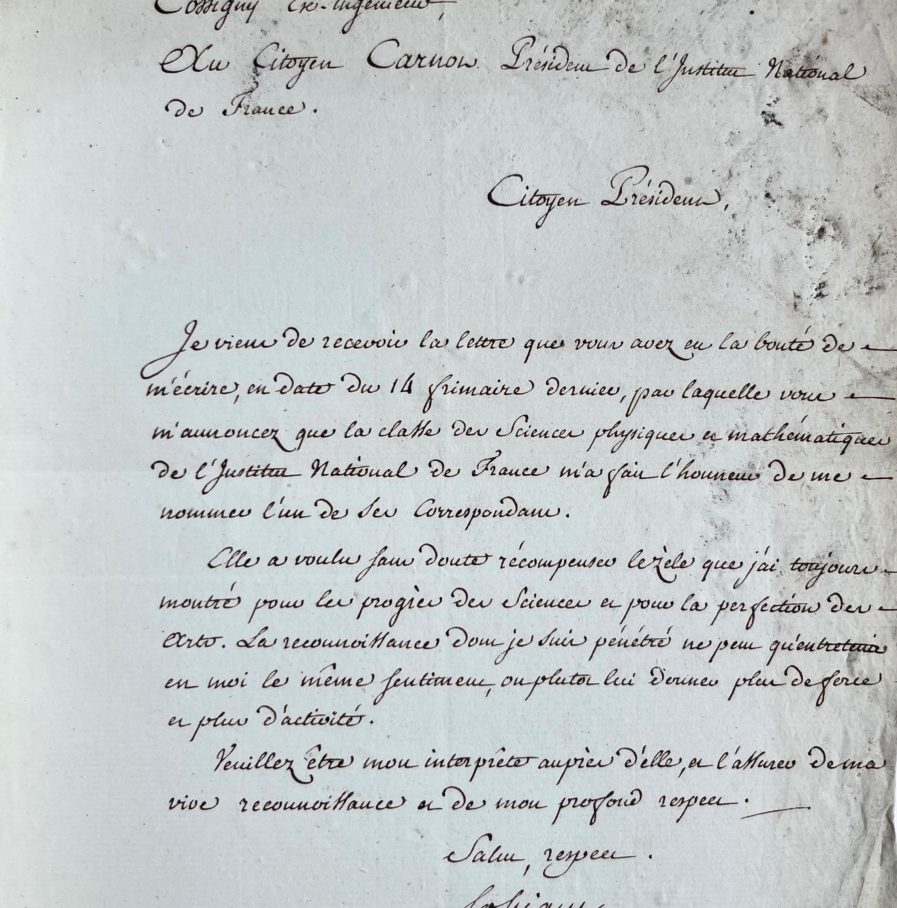 Cossigny Ex-ingénieur,
Au Citoyen Carnot Président de l'Institut National
de France.
Citoyen Président,
Je viens de recevoir la lettre que vous avez eu la bonté de
m'écrire, en date du 14 frimaire dernier, par laquelle vous
m'annoncez que la classe des Sciences physiques et mathématiques
de l'Institut National de France m'a fait l'honneur de me
nommer l'un de ses Correspondans.
Elle a voulu sans doute récompenser le zèle que j'ai toujours
montré pour les progrès des Sciences et pour la perfection des
Arts. La reconnoissance dont je suis pénétré ne peut qu'entretenir
en moi le même sentiment, ou plutot lui donner plus de force
et plus d'activité.
Veuillez être mon interprête auprès d'elle, et l'assurer de ma
vive reconnoissance et de mon profond respect.
Salut, respect.
Cossigny